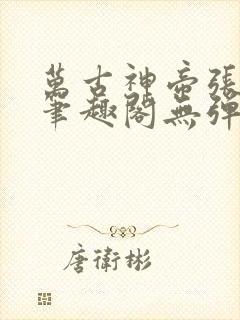 萬古神帝張
筆趣閣無彈
唐衛彬